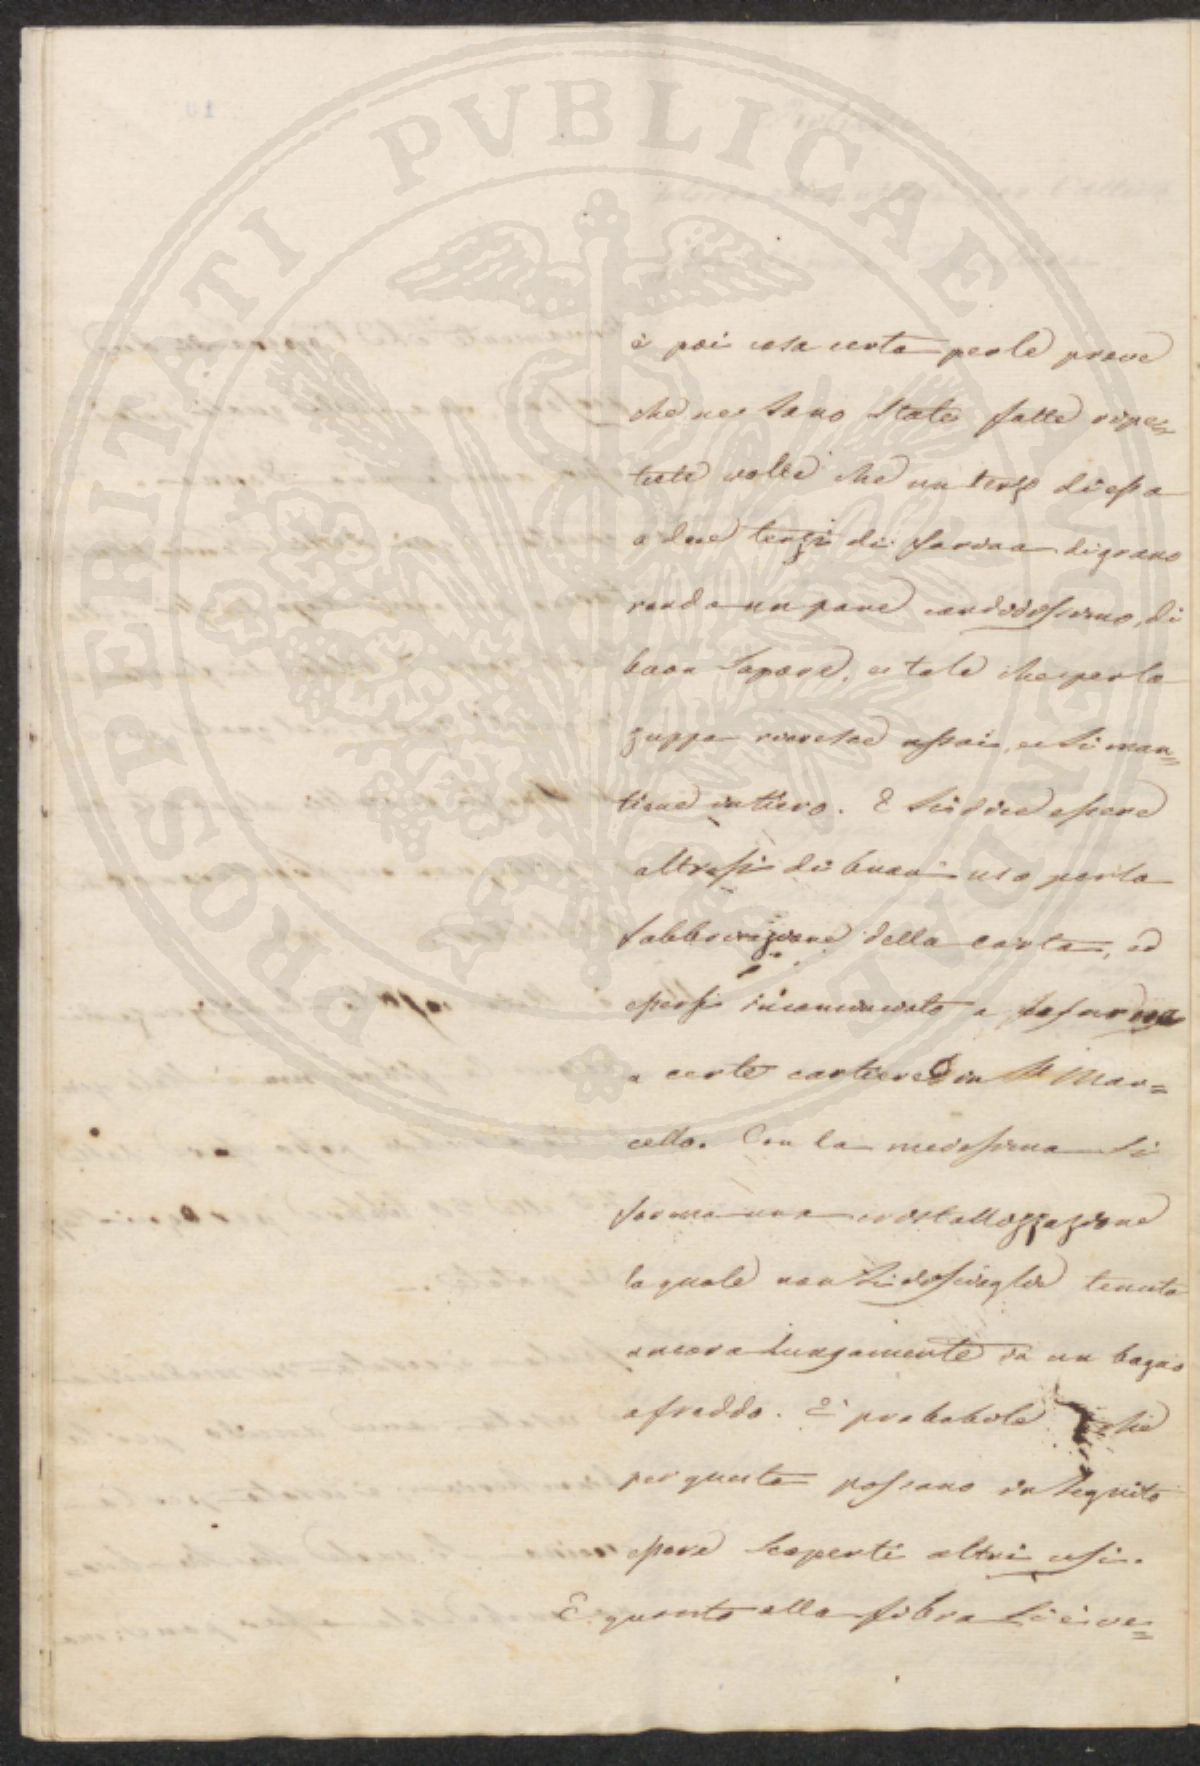 PROSPERITATI PVBLICAE AVGENDAE
è poi cosa certa per le prove
che ne sono state fatte ripe=
tute volte che un terzo di essa
a due terzi di farina di grano
renda un pane candidissimo, di
buon sapore, e tale che per la
zuppa riesce assai, e si man=
tiene intiero. E si dice essere
altresì di buon uso per la
fabbricazione della carta, ed
essersi incominciato a
a certe cartiere in S. Mar=
cello. Con la medesima si
forma una cristallizzazione
la quale non si discioglie tenuta
ancora lungamente in un bagno
a freddo. E' probabile che
per questa possano in seguito
essere scoperti altri usi.
E quanto alla fibra si è ve=